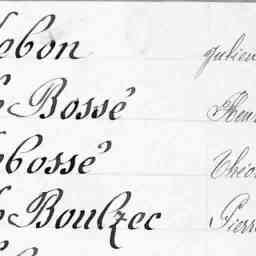 ebon Julien
Bossé Henr
bossé Théo
Boulzec Pierr